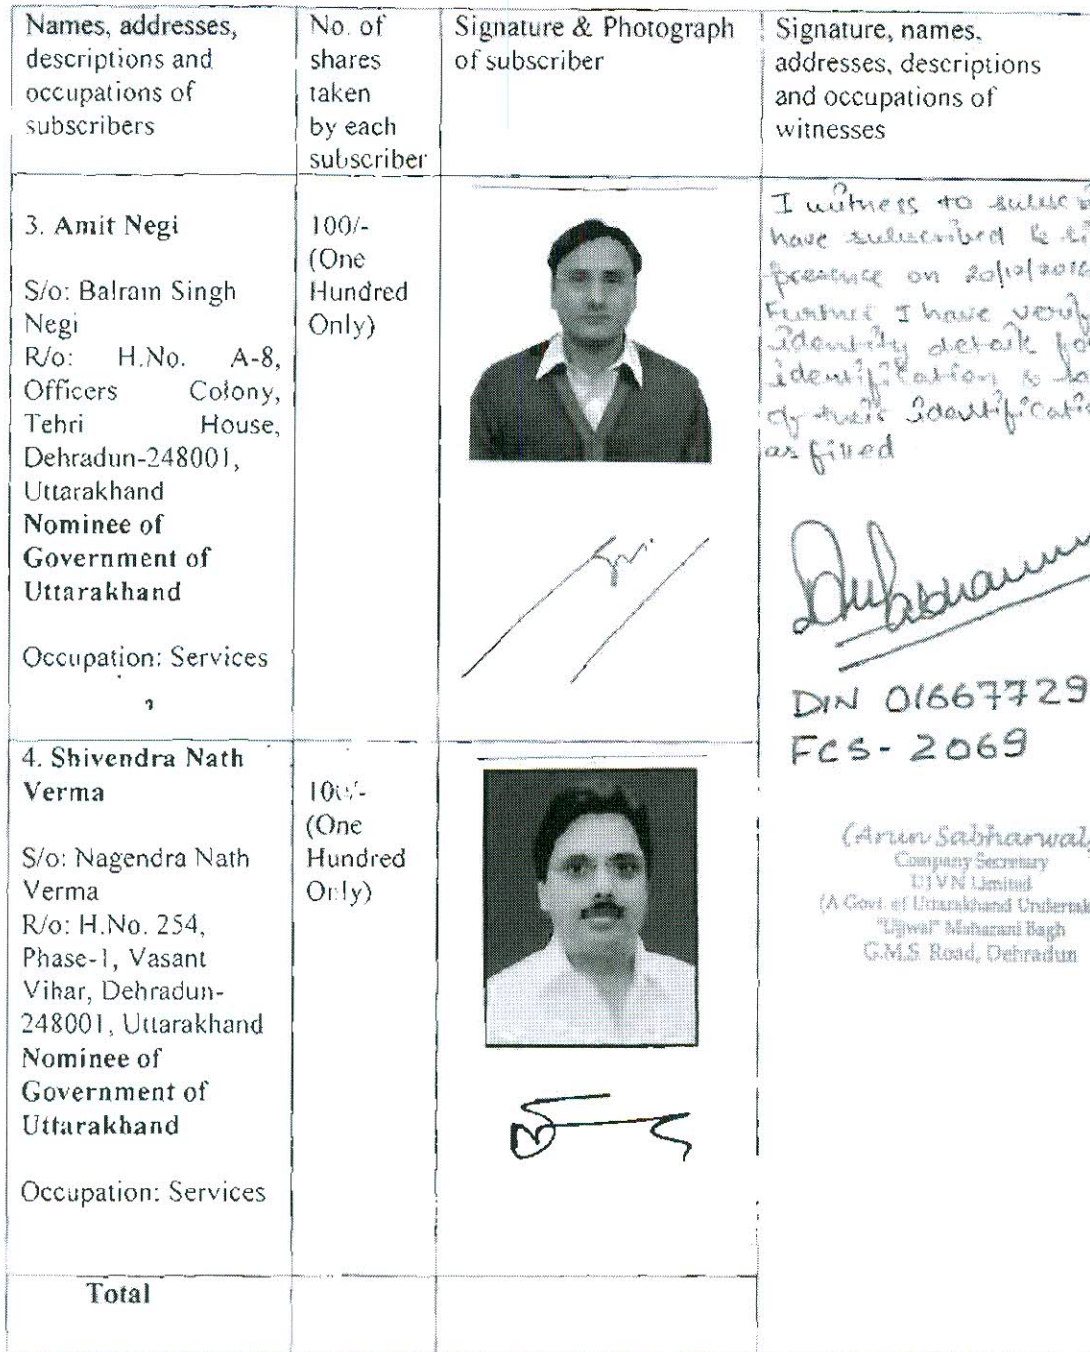 Names, addresses,
descriptions and
occupations of
subscribers
No. of
shares
taken
by each
subscriber
Signature & Photograph
of subscriber
Signature, names,
addresses, descriptions
and occupations of
witnesses
3. Amit Negi
S/o: Balram Singh
Negi
R/o: H.No. A-8,
Officers Colony,
Tehri House,
Dehradun-248001,
Uttarakhand
Nominee of
Government of
Uttarakhand
Occupation: Services
100/-
(One
Hundred
Only)
I witness to
have subscribed
presence on
Further I have
identity
identification
of their
as filled
DIN 01667729
FCS- 2069
(Arun Sabharwal)
Company Secretary
UJVN Limited
(A Govt. of Uttarakhand
"Ujjwal" Maharani Bagh
G.M.S. Road, Dehradun
4. Shivendra Nath
Verma
S/o: Nagendra Nath
Verma
R/o: H.No. 254,
Phase-1, Vasant
Vihar, Dehradun-
248001, Uttarakhand
Nominee of
Government of
Uttarakhand
Occupation: Services
100/-
(One
Hundred
Only)
Total